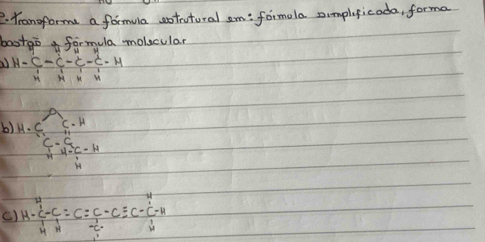 2. Transforme a fórmula estrutural em: fórmula simplificada, forma
bastão e fórmula molecular
H H H H
a) H-C-C-C-C-H
H H H H
O
b) H-C C-H
C-C
H H-C-H
H
H H
c) H-C-C=C=C-C≡C-C-H
H H -C- H